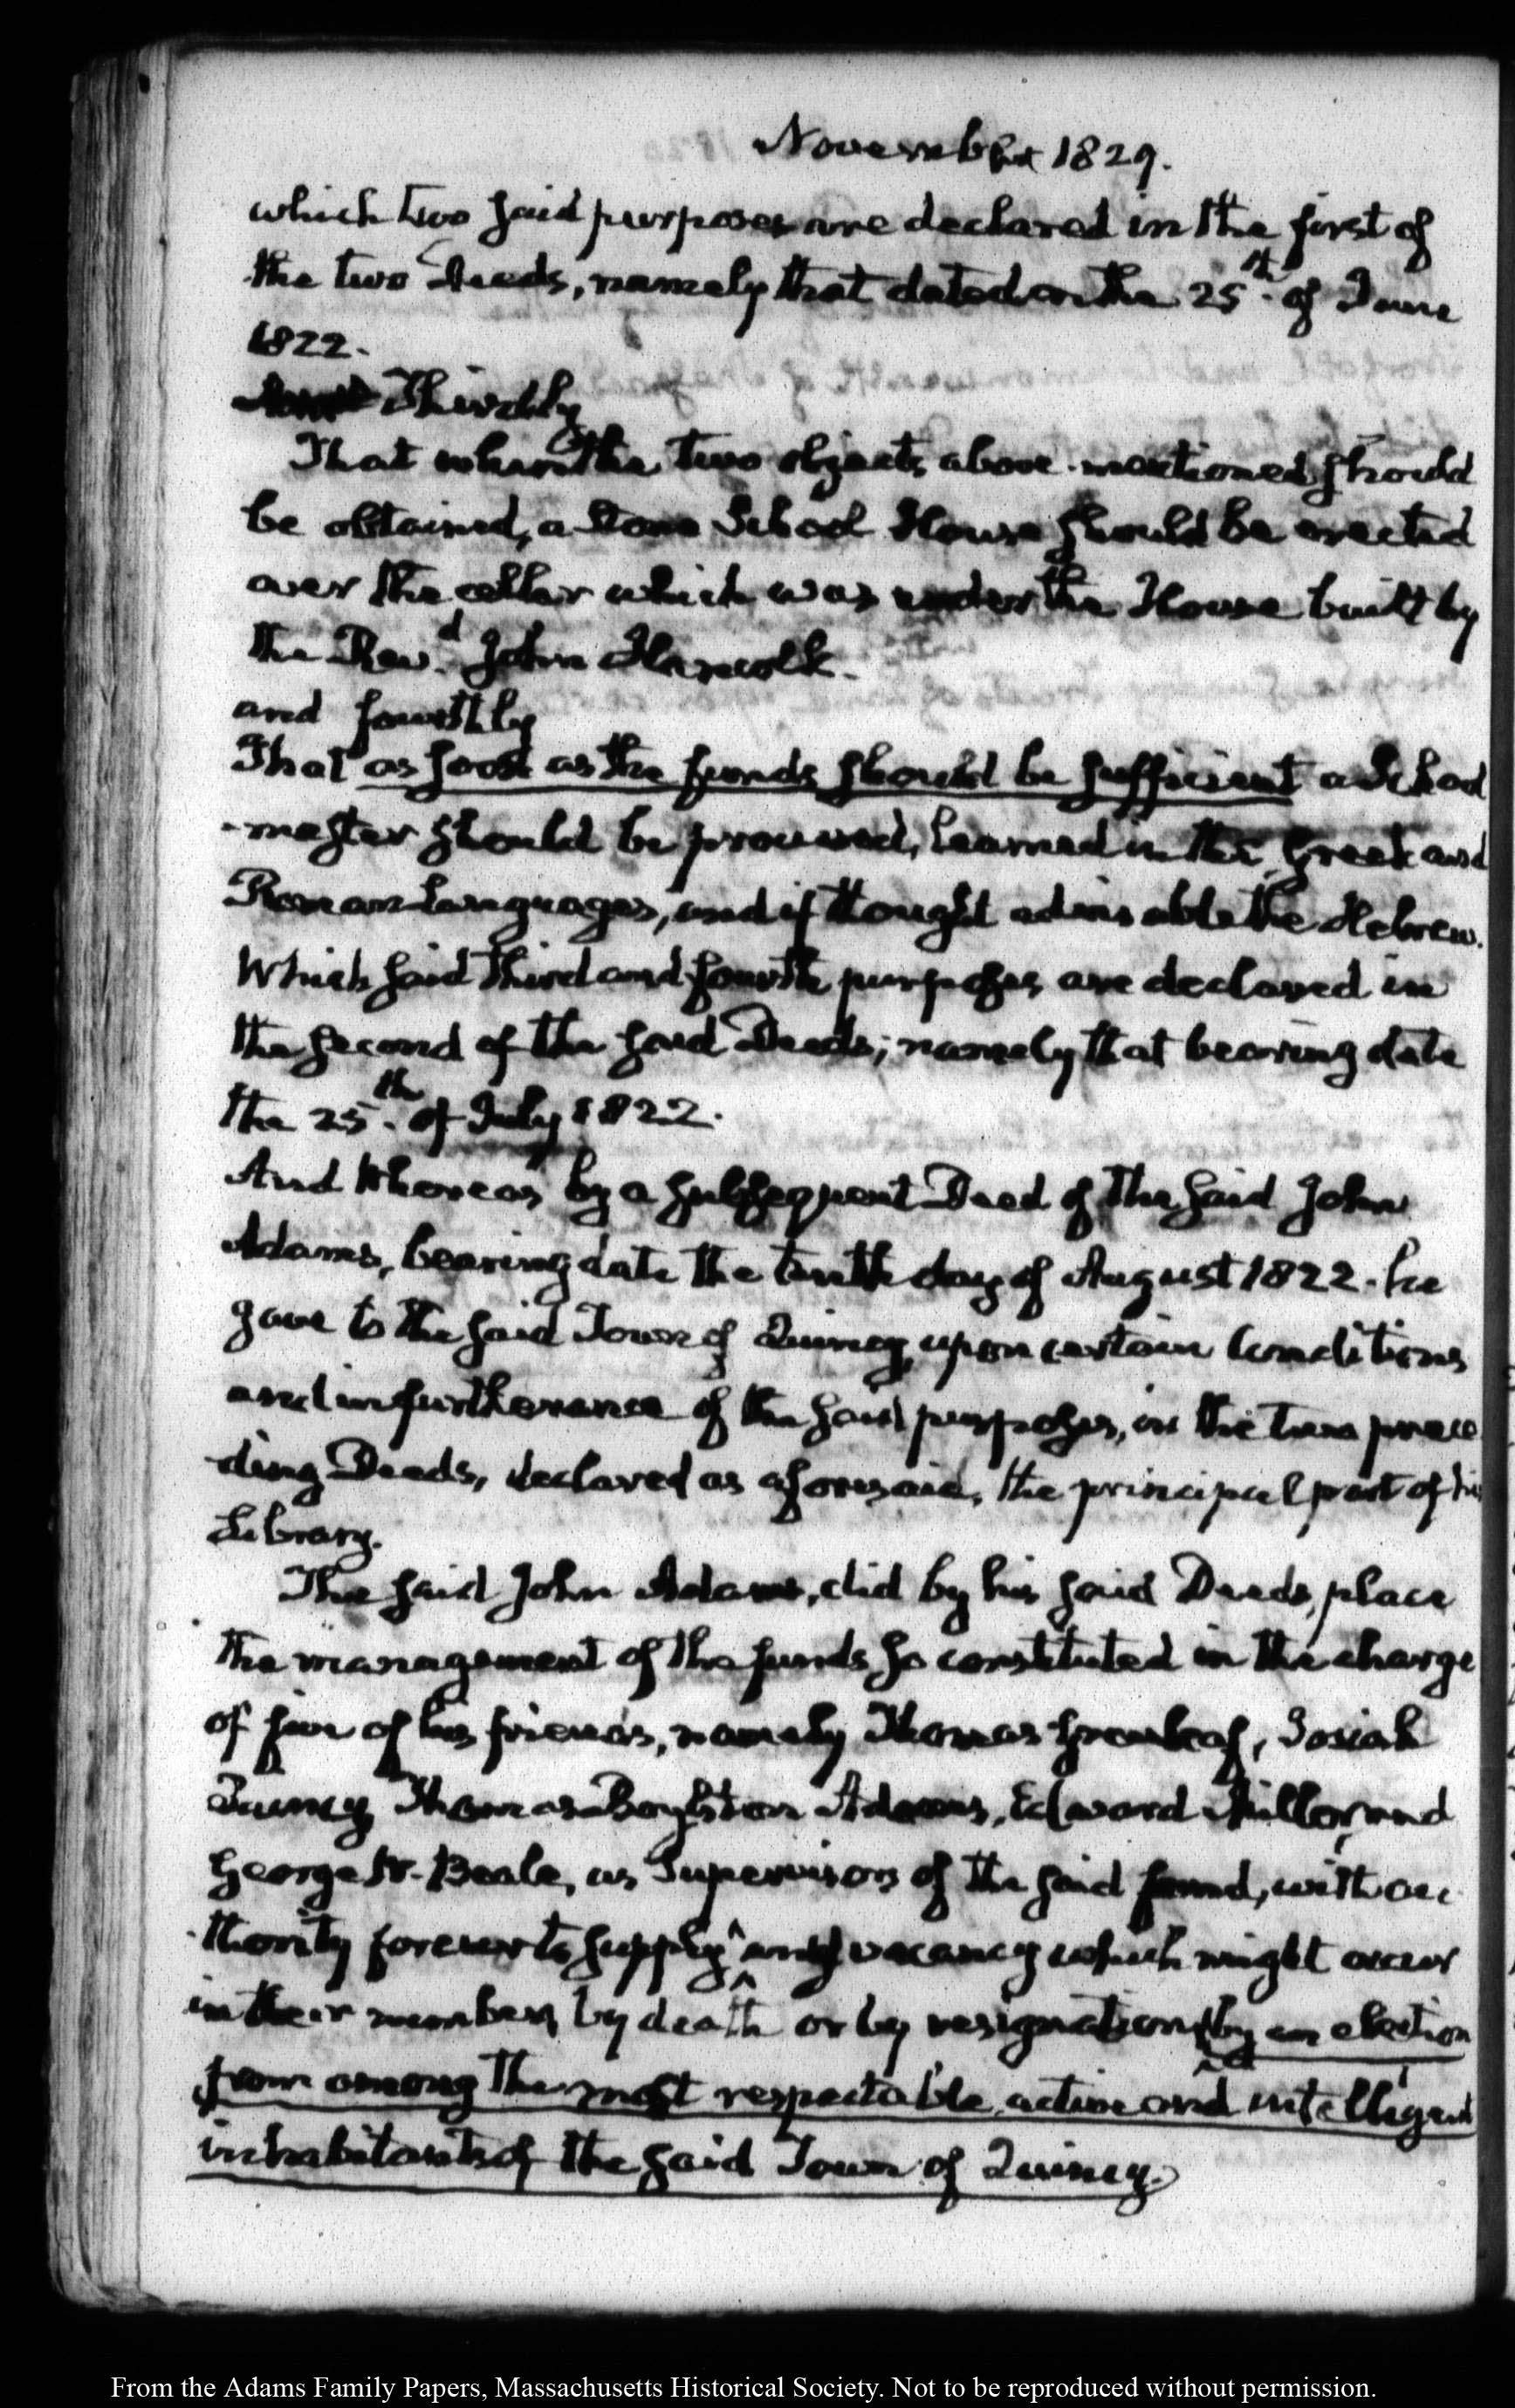 November 1829.
which two said purposes are declared in the first of
the two Deeds, namely that dated on the 25th. of June
1822.
Thirdly
That when the two objects above-mentioned should
be obtained, a Stone School House should be erected
over the cellar which was under the House built by
the Revd. John Hancock.
and fourthly
That as soon as the funds should be sufficient a School
-master should be procured, learned in the Greek and
Roman Languages, and if thought advisable the Hebrew.
Which said third and fourth purposes are declared in
the second of the said Deeds; namely that bearing date
the 25th. of July 1822.
And Whereas by a subsequent Deed of the said John
Adams, bearing date the tenth day of August 1822. he
gave to the said Town of Quincy, upon certain Conditions
and in furtherance of the said purposes, in the two prece
-ding Deeds, declared as aforesaid, the principal part of his
Library.
The said John Adams, did by his said Deeds, place
the management of the funds so constituted in the charge
of five of his friends, namely Thomas Greenleaf, Josiah
Quincy Thomas Boylston Adams, Edward Miller, and
George W. Beale, as Supervisors of the said fund, with au
-thority forever to supply any vacancy which might occur
in their members by death or by resignation (by an election
from among the most respectable, active and intelligent
inhabitants of the said Town of Quincy.)
From the Adams Family Papers, Massachusetts Historical Society. Not to be reproduced without permission.